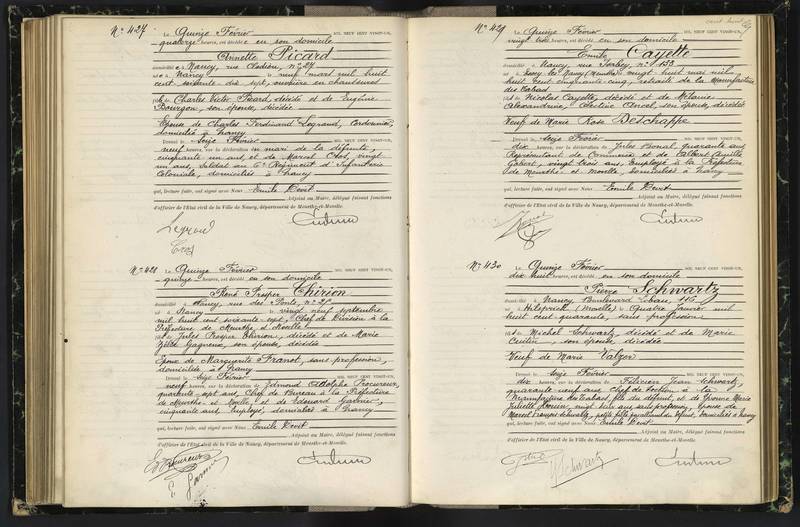 N° 427
Le Quinze Février MIL NEUF CENT VINGT-UN,
quatorze heures, est décédée en son domicile
Annette Picard
domiciliée à Nancy, rue Clodion, n° 27
née à Nancy le neuf mars mil huit
cent soixante dix sept, ouvrière en chaussures
fille de Charles Victor Picard, décédé et de Eugénie
Bourgon, son épouse, décédée
Epouse de Charles Ferdinand Legrand, Cordonnier,
domiciliés à Nancy
Dressé le Seize Février MIL NEUF CENT VINGT-UN,
neuf heures, sur la déclaration du mari de la défunte,
cinquante un ans et de Marcel vingt
un ans, Soldat au Régiment d'Infanterie
Coloniale, domiciliés à Nancy
qui, lecture faite, ont signé avec Nous Emile Devit
Adjoint au Maire, délégué faisant fonctions
d'officier de l'État civil de la Ville de Nancy, département de Meurthe-et-Moselle.
Legrand
N° 428
Le Quinze Février MIL NEUF CENT VINGT-UN,
quinze heures, est décédé en son domicile
René Prosper Thirion
domicilié à Nancy, rue des Ponts, n°
né à Nancy le vingt neuf septembre
mil huit cent soixante sept, Chef de Division à la
Préfecture de Meurthe et Moselle
fils de Jules Prosper Thirion, décédé et de Marie
Gagneux, son épouse, décédée
Epoux de Marguerite Franot, sans profession,
domiciliée à Nancy
Dressé le Seize Février MIL NEUF CENT VINGT-UN,
neuf heures, sur la déclaration de Edmond Adolphe Procureur,
quarante sept ans, Chef de Bureau à la Préfecture
de Meurthe et Moselle et de Edouard Garnier,
cinquante ans, employé, domiciliés à Nancy
qui, lecture faite, ont signé avec Nous Emile Devit
Adjoint au Maire, délégué faisant fonctions
d'officier de l'État civil de la Ville de Nancy, département de Meurthe-et-Moselle.
Procureur
Garnier
N° 429
Le Quinze Février MIL NEUF CENT VINGT-UN,
vingt heures, est décédé en son domicile
Emile Cayette
domicilié à Nancy, rue Isabey, n° 133
né à Nancy (Meurthe) le vingt huit mai mil
huit cent cinquante cinq, retraité de la Manufacture
des Tabacs
fils de Nicolas Cayette, décédé et de Mélanie
Alexandrine, Célestine Ancel, son épouse, décédée
Veuf de Marie Rose Deschoppe
Dressé le Seize Février MIL NEUF CENT VINGT-UN,
dix heures, sur la déclaration de Jules quarante ans,
Représentant de Commerce et de Albert Camille
vingt trois ans, Employé à la
de Meurthe et Moselle, domiciliés à Nancy
qui, lecture faite, ont signé avec Nous Emile Devit
Adjoint au Maire, délégué faisant fonctions
d'officier de l'État civil de la Ville de Nancy, département de Meurthe-et-Moselle.
N° 430
Le Quinze Février MIL NEUF CENT VINGT-UN,
dix huit heures, est décédé en son domicile
Pierre Schwartz
domicilié à Nancy, Boulevard Lobau, 116
né à Hilsprich (Moselle) le Quatre Janvier mil
huit cent quarante, sans profession
fils de Michel Schwartz, décédé et de Marie
son épouse, décédée
Veuf de Marie Valzer
Dressé le Seize Février MIL NEUF CENT VINGT-UN,
dix heures, sur la déclaration de Félicien Jean Schwartz,
quarante neuf ans, Chef de Section à la
Manufacture des Tabacs, fils du défunt, et de Yvonne Marie
Juliette vingt deux ans, sans profession, épouse de
Marcel François Schwartz, petite fille par alliance du défunt, domiciliés à Nancy
qui, lecture faite, ont signé avec Nous Emile Devit
Adjoint au Maire, délégué faisant fonctions
d'officier de l'État civil de la Ville de Nancy, département de Meurthe-et-Moselle.
Schwartz